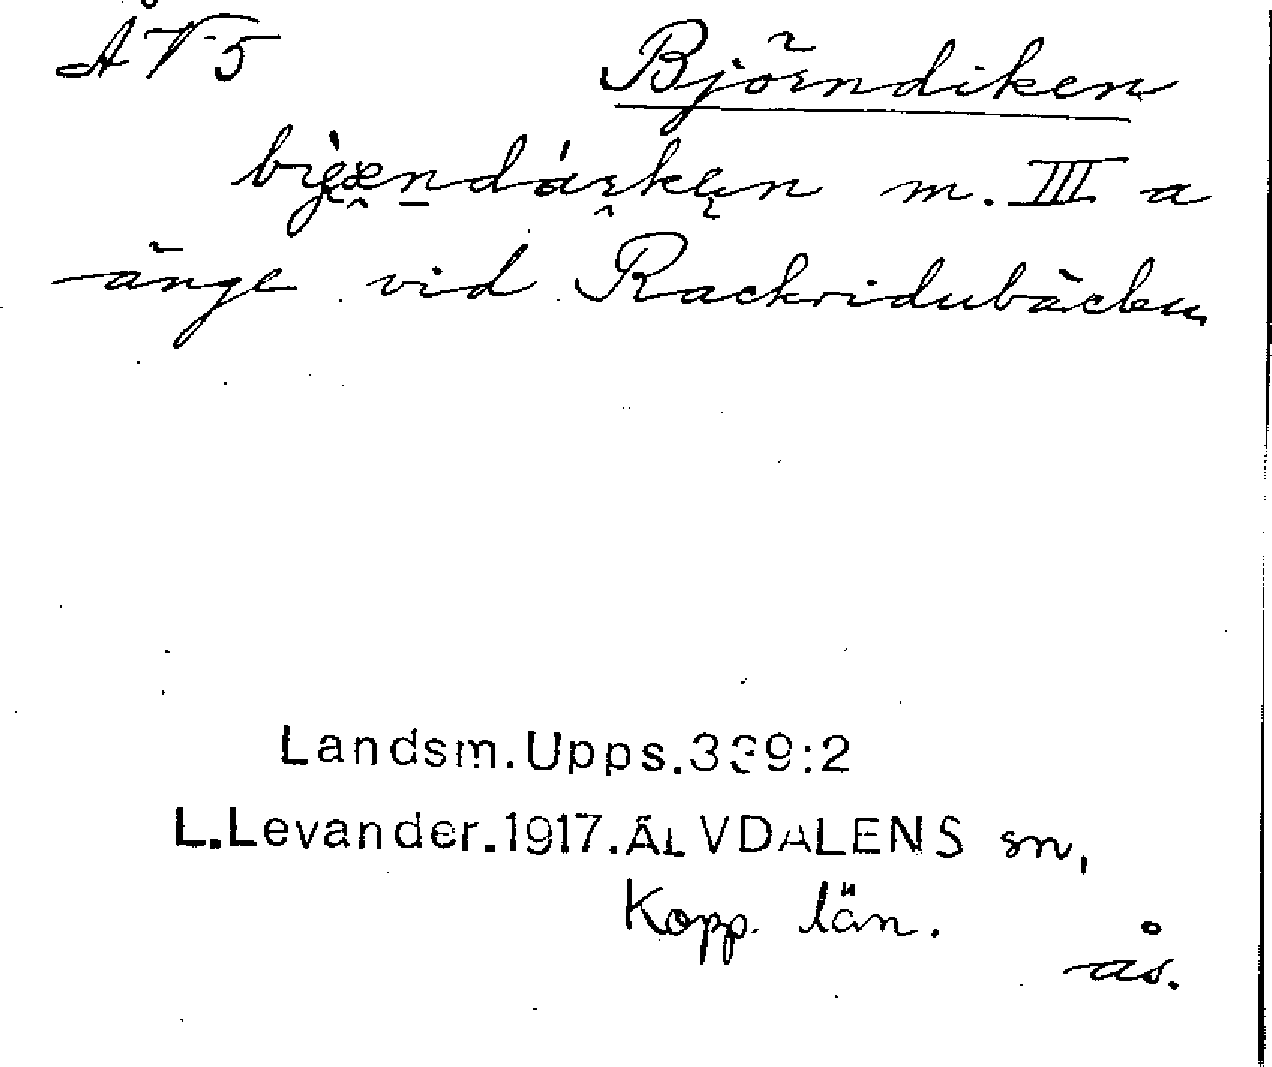 ÅV5 Björndiken
m. III a
änge vid Rackridubäcken
Landsm.Upps.339:2
L.Levander.1917.ÄLVDALENS sn,
Kopp. län.
ås.